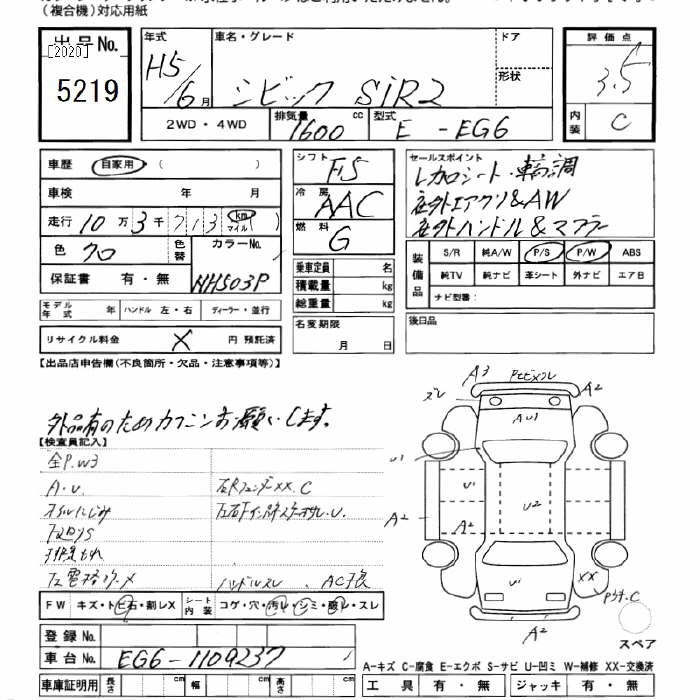 (複合機)対応用紙
出品No.
[2020]
5219
年式
H5/6月
車名・グレード
シビック SiR2
ドア
形状
2WD・4WD
排気量 1600 cc
型式 E-EG6
評価点
3.5
内装 C
車歴 自家用 ( )
車検 年 月
走行 10万3千713 km マイル ( )
色 クロ
色替
カラーNo. NH503P
保証書 有・無
シフト F5
冷房 AAC
燃料 G
乗車定員 名
積載量 kg
総重量 kg
セールスポイント
レカロシート・車高調
社外エアクリ&AW
社外ハンドル&マフラー
装備品
S/R 純A/W P/S P/W ABS
純TV 純ナビ 革シート 外ナビ エア日
ナビ型番:
モデル年式 年 ハンドル 左・右 ディーラー・並行
リサイクル料金 X 円 預託済
名変期限
月 日
後日品
【出品店申告欄(不良箇所・欠品・注意事項等)】
外品有のためカクニンお願いします。
【検査員記入】
全P.W3
A・U
オイルにじみ
ハンドルスレ、AC不良
FW キズ・トビ石・割レX
シート内装 コゲ・穴・汚レ・シミ・破レ・スレ
A3
A2
ズレ
AU1
U1
U1
U2
A2
A2
U1
XX
A2
スペア
登録No.
車台No. EG6-1109237
A-キズ C-腐食 E-エクボ S-サビ U-凹ミ W-補修 XX-交換済
車庫証明用 長さ cm 幅 cm 高さ cm
工具 有・無 ジャッキ 有・無